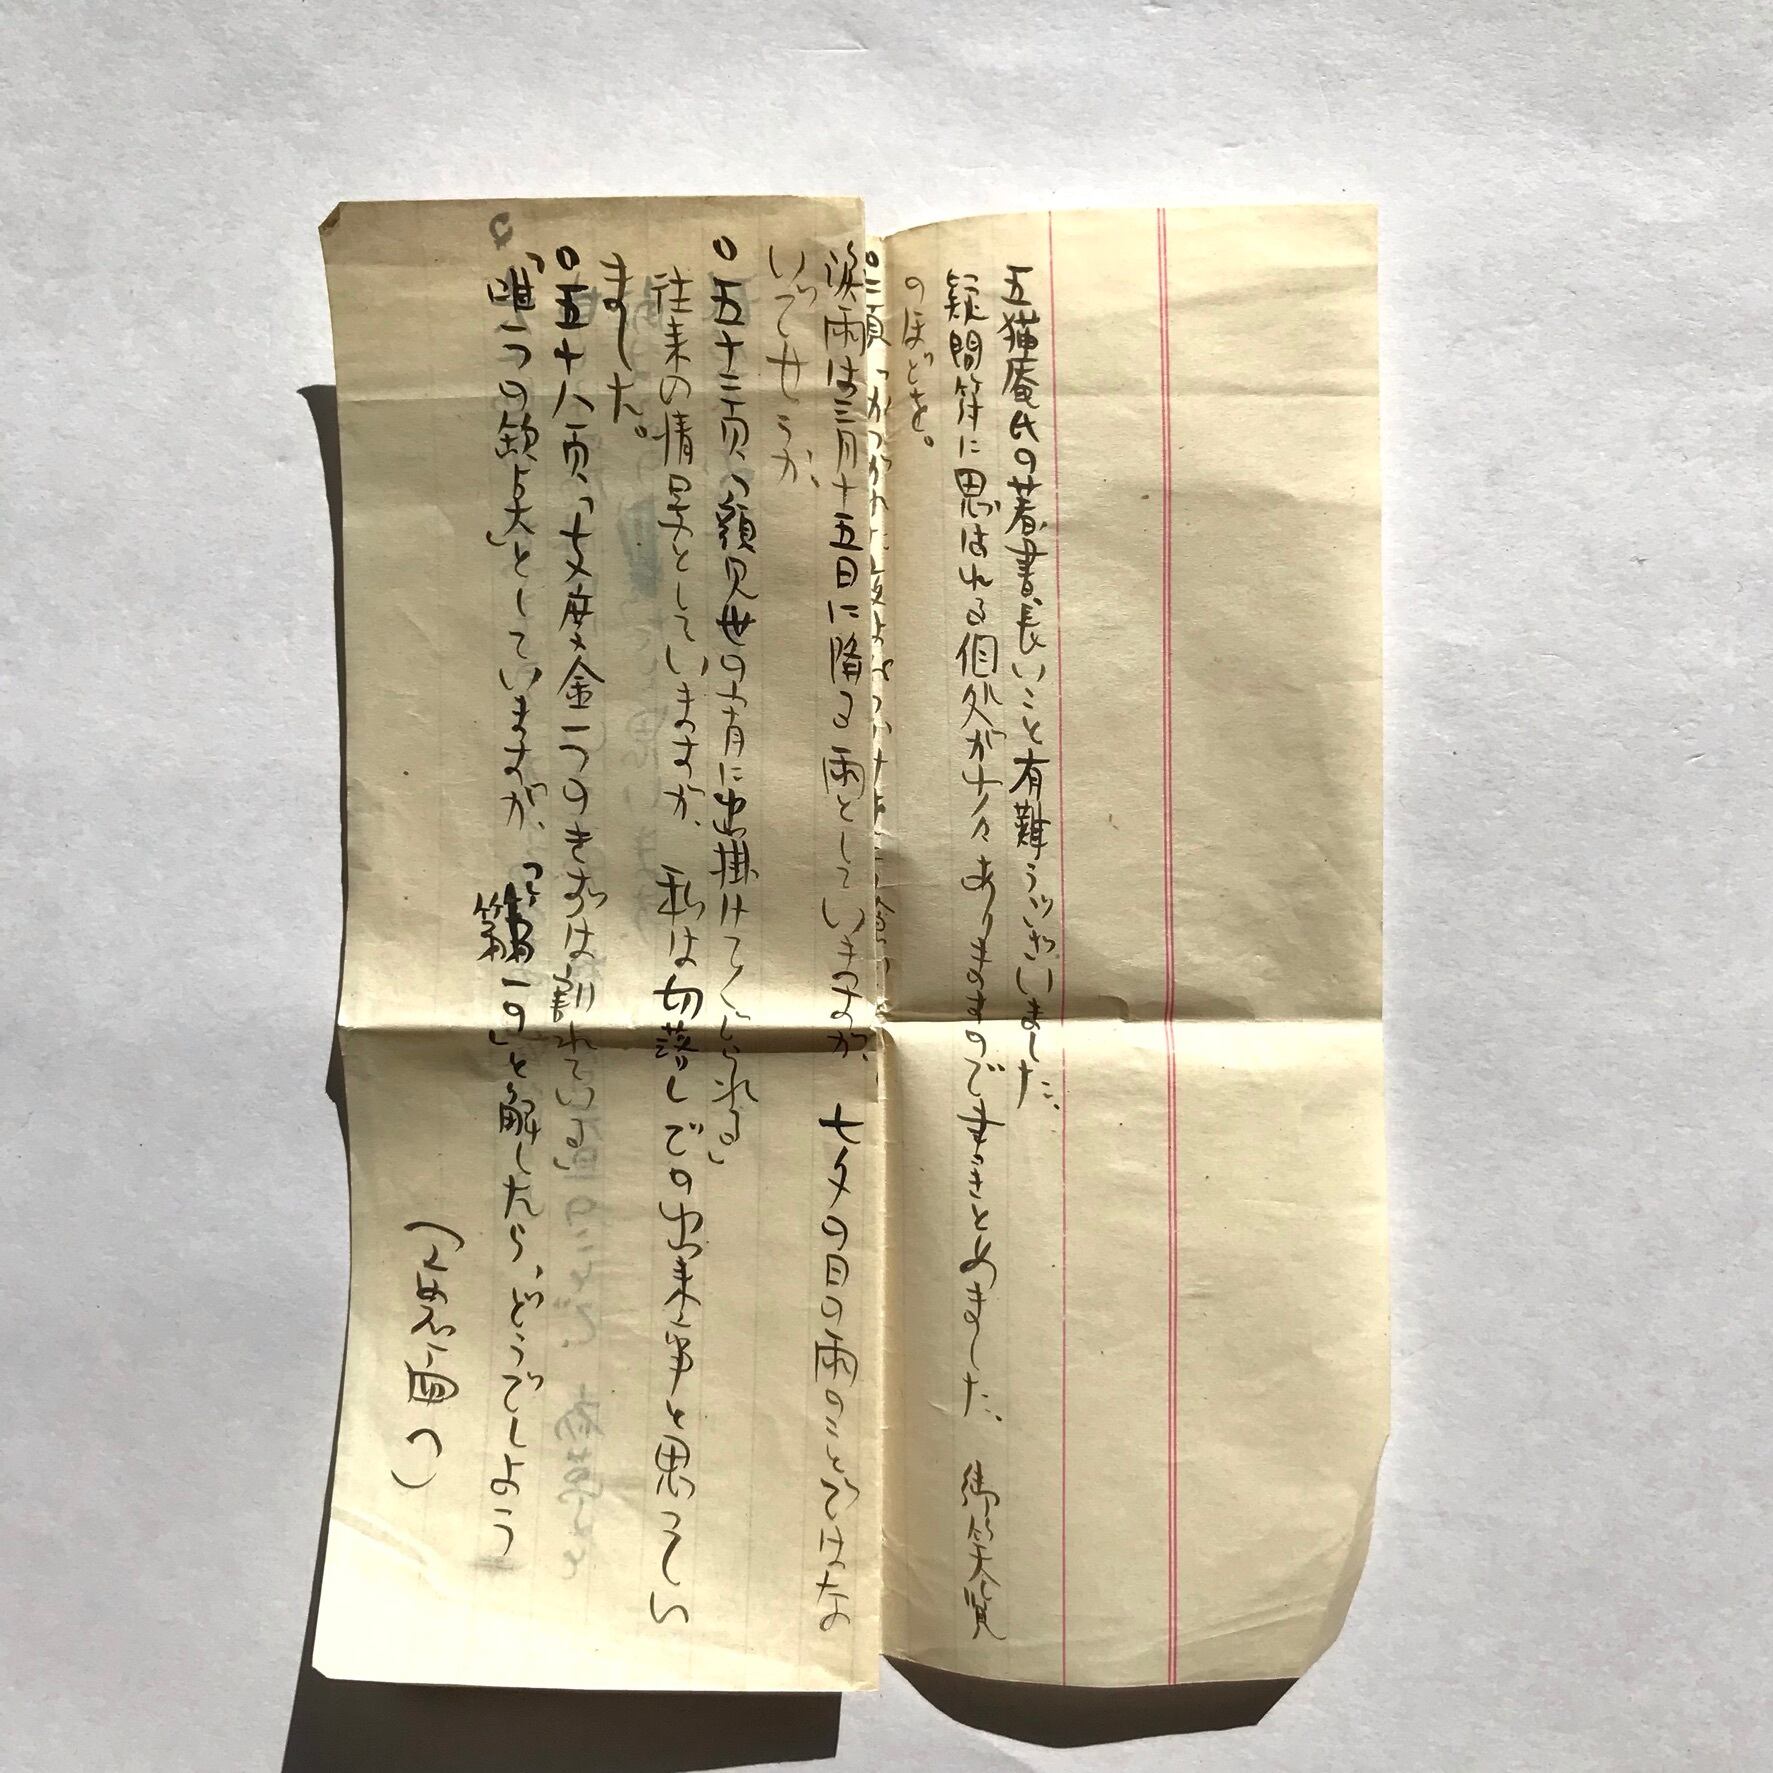 五猫庵氏の著書長いこと有難うございました、
疑問符に思はれる個処が少々ありますので書きとめました、御笑覧
のほどを。
涙雨は三月十五日に降る雨としていますが、七夕の日の雨のことではな
いでせうか、
○五十三頁、「顔見世の中者に出掛けてくられる」
往来の情景としていますが、私は切落しでの出来事と思ってい
ました。
○五十八頁、「丈度金一つのきずは訓れている」
「唯一つの欠点」としていますが、「第一の」と解したら、どうでしよう